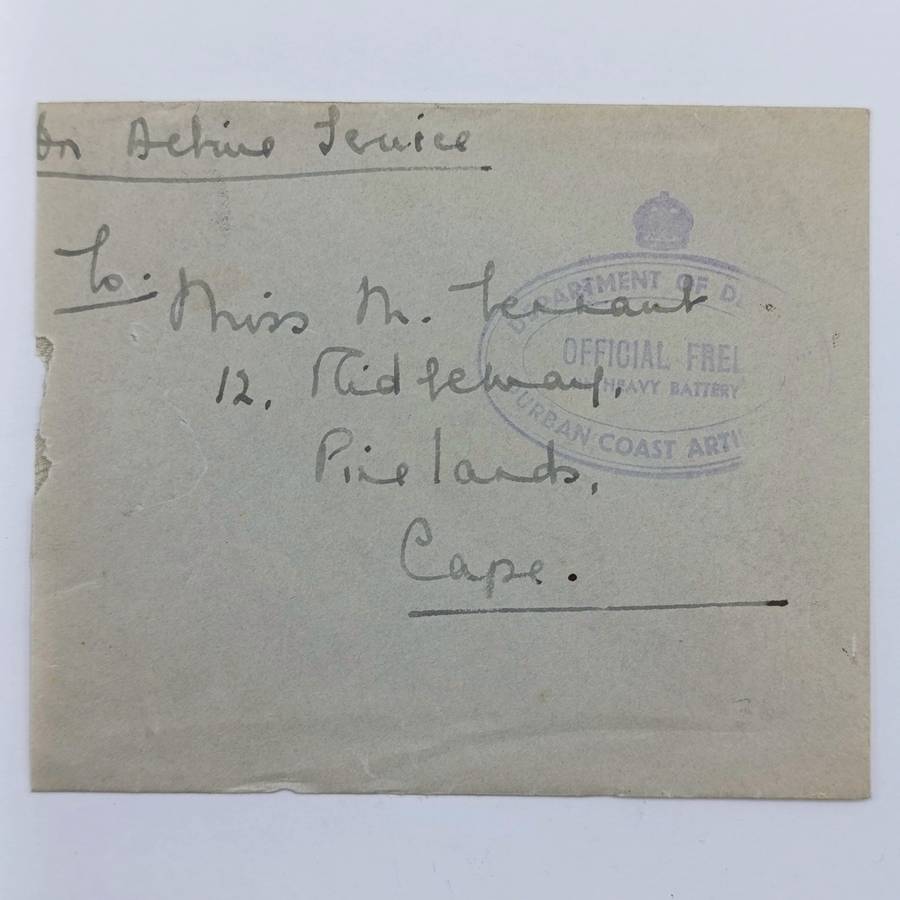 On Active Service
To.
Miss M. Tennant
12, Ridgeway,
Pinelands,
Cape.
DEPARTMENT OF DE
OFFICIAL FREE
HEAVY BATTERY
DURBAN COAST ARTI